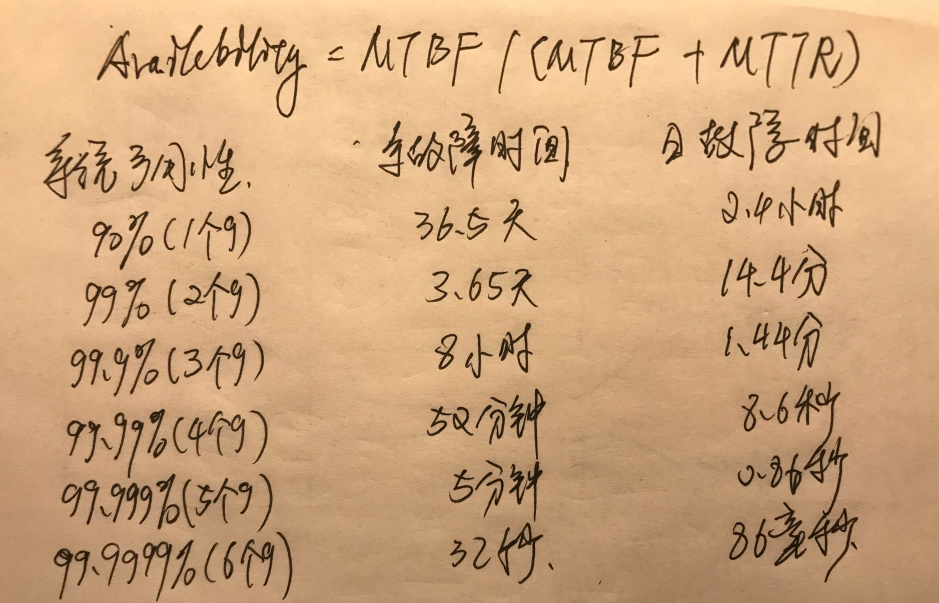 Availebility = MTBF / (MTBF + MTTR)
系统可用性. 年故障时间 日故障时间
90% (1个9) 36.5天 2.4小时
99% (2个9) 3.65天 14.4分
99.9% (3个9) 8小时 1.44分
99.99% (4个9) 52分钟 8.6秒
99.999% (5个9) 5分钟 0.86秒
99.9999% (6个9) 32秒. 86毫秒.